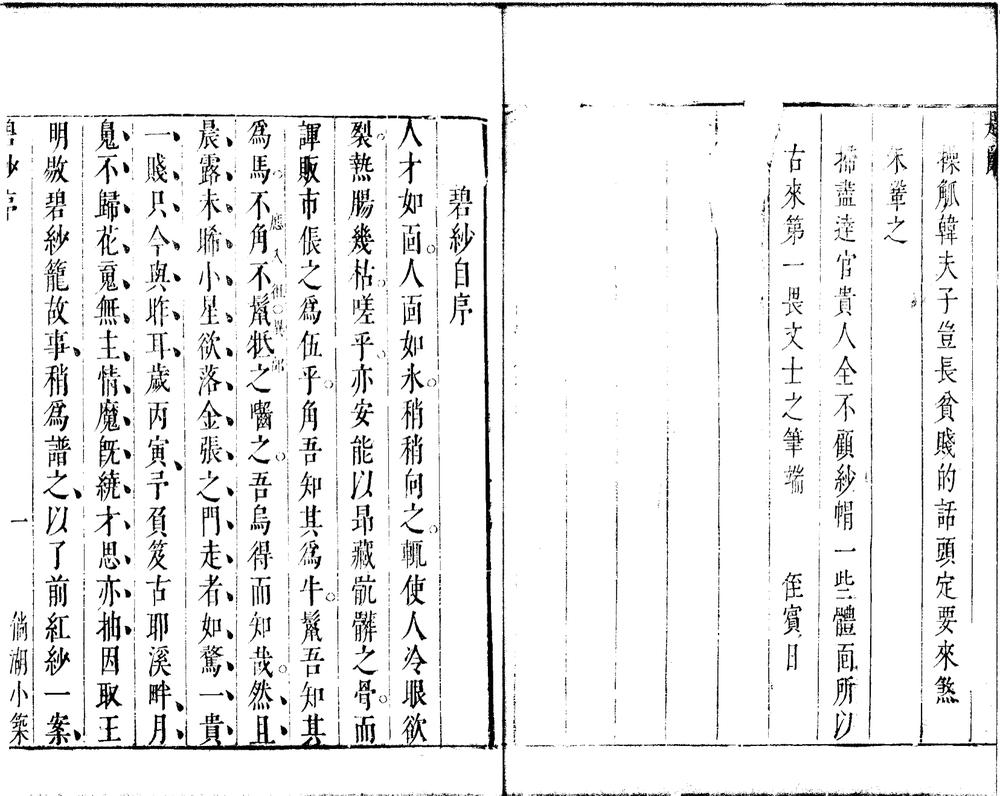 操觚韓夫子豈長貧賤的話頭定要來煞
末輩之
掃盡達官貴人全不顧紗帽一些體面所以
古來第一畏文士之筆端 侄賓日
碧紗自序
人才如面人面如氷稍稍向之輒使人冷眼欲
裂熱腸幾枯嗟乎亦安能以昂藏骯髒之骨而
諢販市倀之為伍乎角吾知其為牛鬣吾知其
為馬不角不鬣牴之嚙之吾烏得而知哉然且
晨露未晞小星欲落金張之門走者如驚一貴
一賤只今與昨耳歲丙寅予負笈古耶溪畔月
鬼不歸花䰟無主情魔旣繞才思亦抽因取王
明敭碧紗籠故事稍為譜之以了前紅紗一案
碧紗序 一 倘湖小築